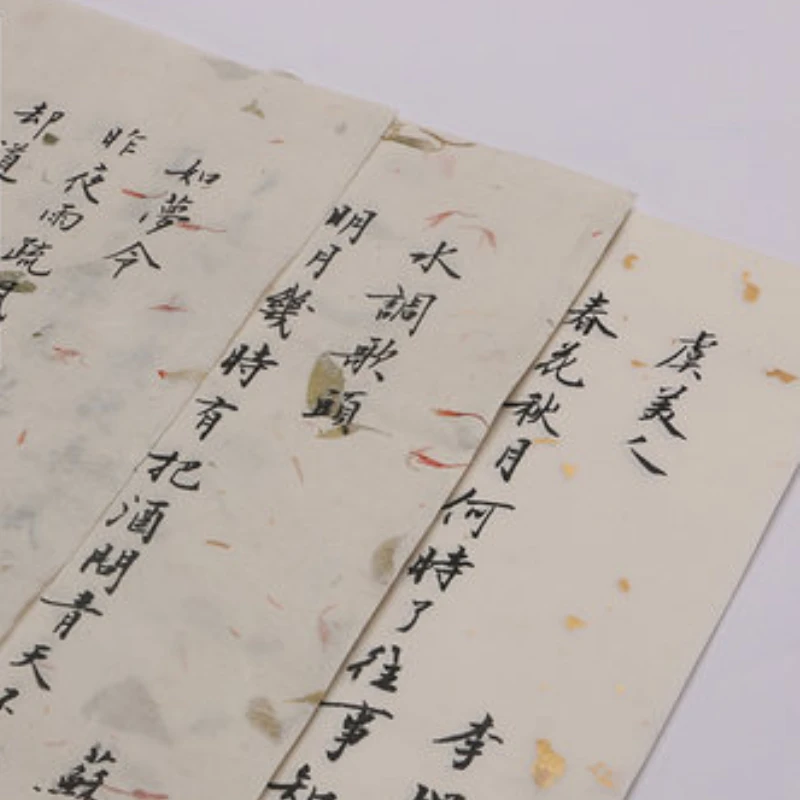 虞美人
李
春花秋月何時了往事知
水調歌頭
蘇
明月幾時有把酒問青天不
如夢令
昨夜雨疏風
却道